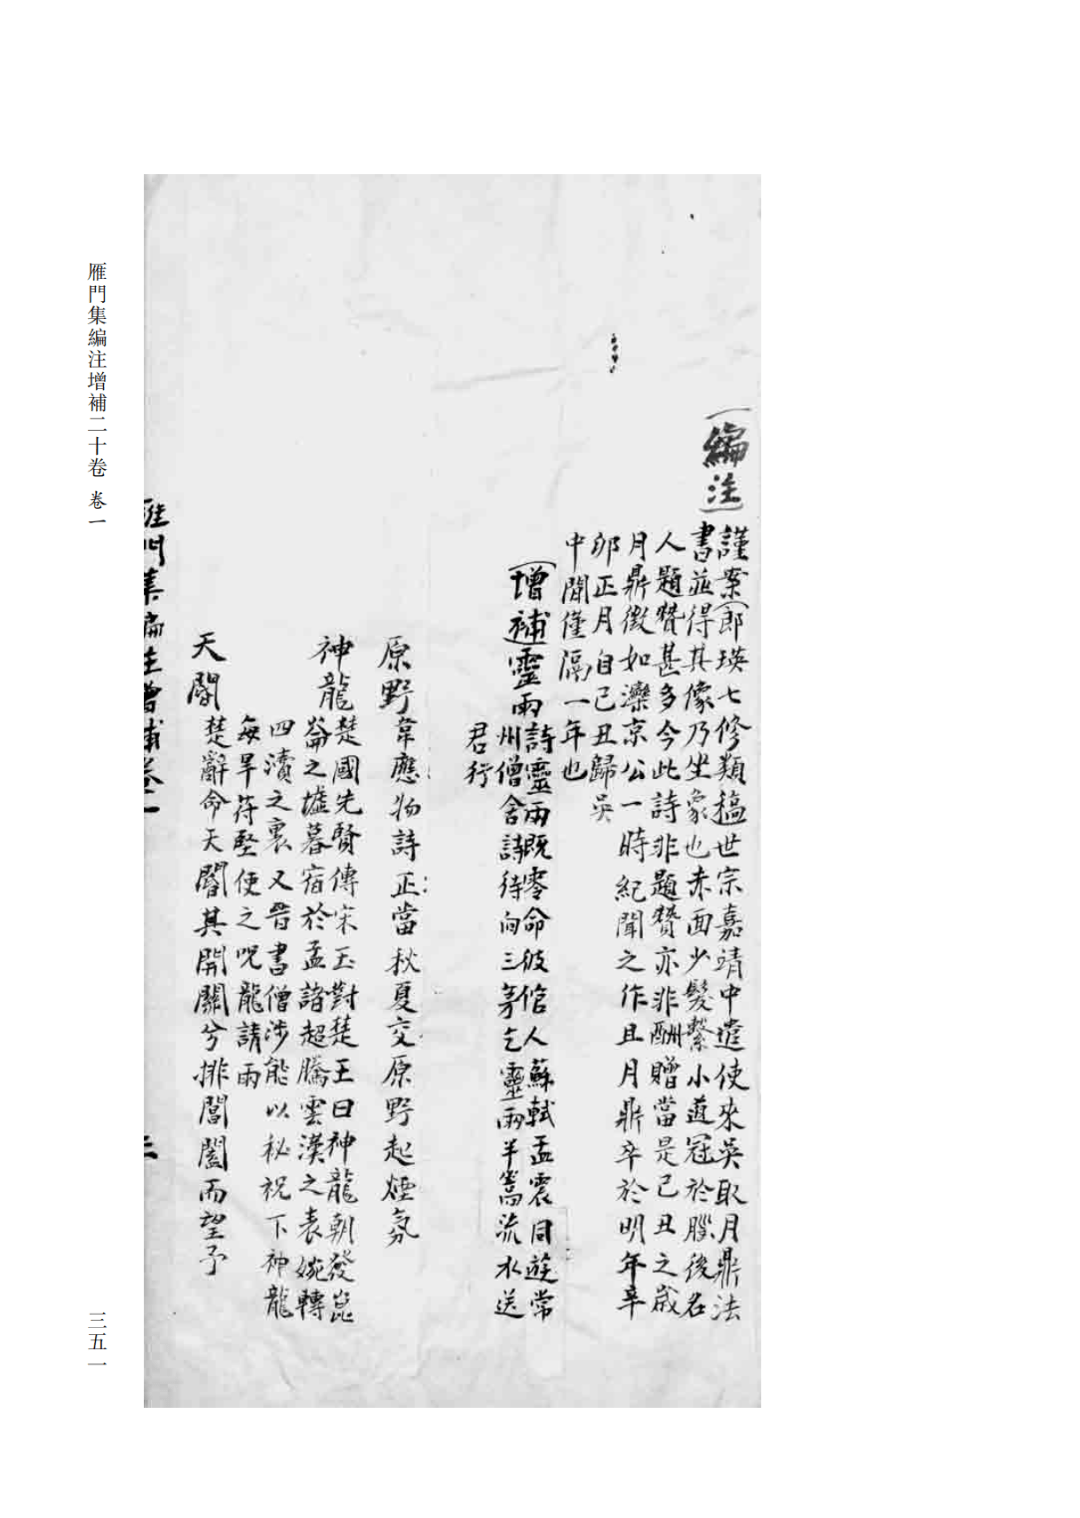 編注
謹案郎瑛七修類稿世宗嘉靖中遣使來吳取月鼎法
書並得其像乃坐象也赤面少髮繫小道冠於腦後名
人題贊甚多今此詩非題贊亦非酬贈當是己丑之歲
月鼎徵如灤京公一時紀聞之作且月鼎卒於明年辛
卯正月自己丑歸吳
中間僅隔一年也
增補靈雨詩靈雨既零命彼倌人蘇軾孟震同遊常
州僧舍詩待向三茅乞靈雨半篙流水送
君行
原野韋應物詩正當秋夏交原野起煙氛
神龍楚國先賢傳宋玉對楚王曰神龍朝發崑
崙之墟暮宿於孟諸超騰雲漢之表婉轉
四瀆之裏又晉書僧涉能以秘祝下神龍
每旱苻堅使之呪龍請雨
天閽楚辭命天閽其開關兮排閶闔而望予
雁門集編注增補卷一
雁門集編注增補二十卷 卷一
三五一